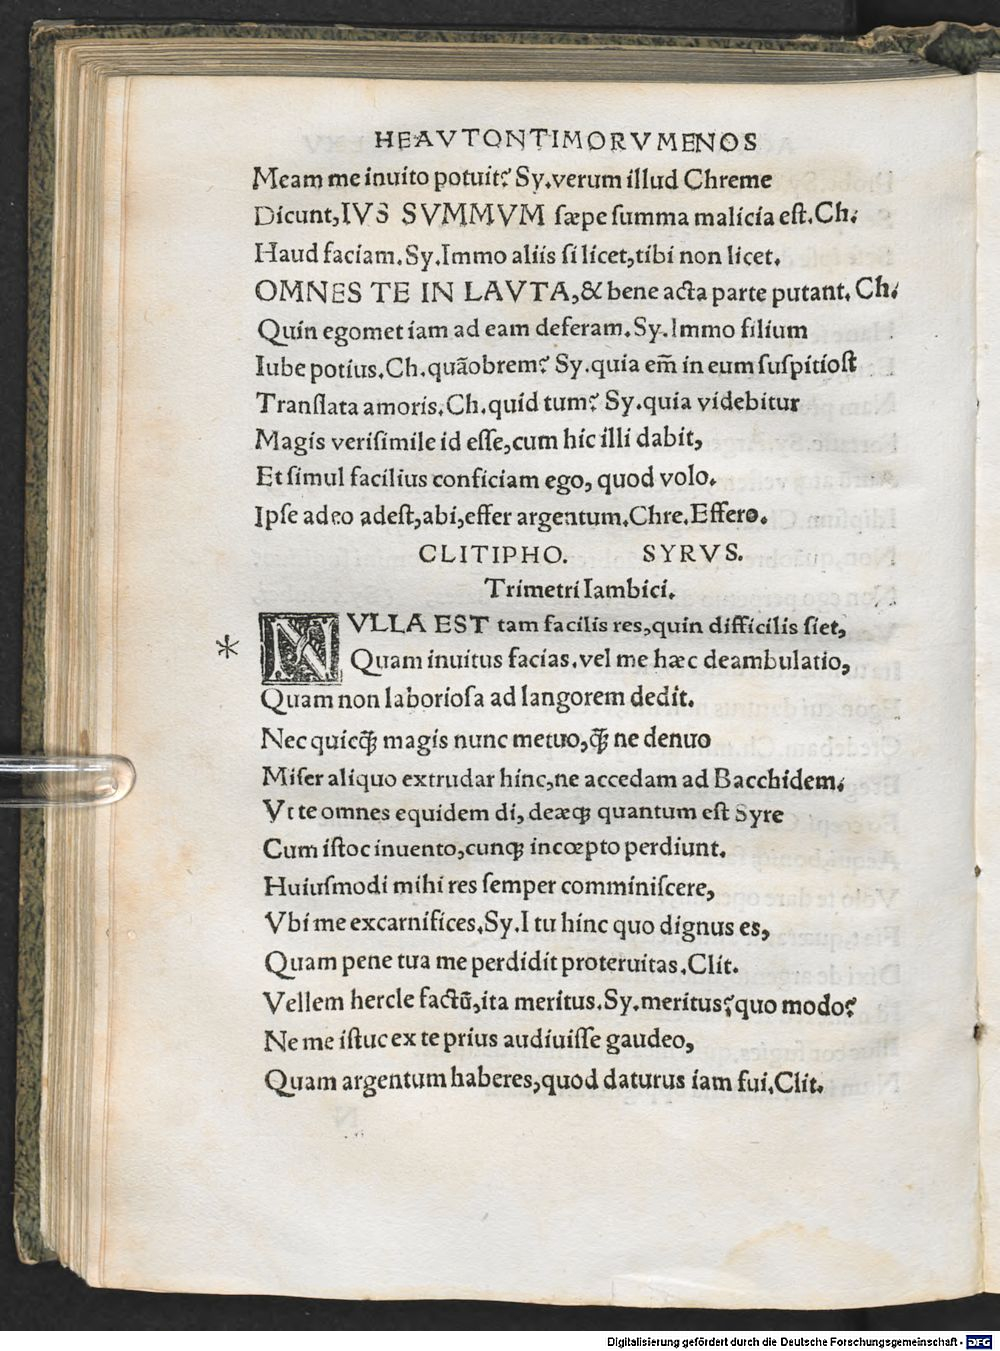 HEAVTONTIMORVMENOS
Meam me inuito potuit? Sy. verum illud Chreme
Dicunt, IVS SVMMVM sæpe summa malicia est. Ch.
Haud faciam. Sy. Immo aliis si licet, tibi non licet.
OMNES TE IN LAVTA, & bene acta parte putant. Ch.
Quin egomet iam ad eam deferam. Sy. Immo filium
Iube potius. Ch. quãobrem? Sy. quia em̃ in eum suspitiost
Translata amoris. Ch. quid tum? Sy. quia videbitur
Magis verisimile id esse, cum hic illi dabit,
Et simul facilius conficiam ego, quod volo.
Ipse adeo adest, abi, effer argentum. Chre. Effero.
CLITIPHO. SYRVS.
Trimetri Iambici.
* NVLLA EST tam facilis res, quin difficilis siet,
Quam inuitus facias. vel me hæc deambulatio,
Quam non laboriosa ad langorem dedit.
Nec quicꝗ̃ magis nunc metuo, ꝗ̃ ne denuo
Miser aliquo extrudar hinc, ne accedam ad Bacchidem.
Vt te omnes equidem di, deæqꝫ quantum est Syre
Cum istoc inuento, cunqꝫ incœpto perdiunt.
Huiusmodi mihi res semper comminiscere,
Vbi me excarnifices. Sy. I tu hinc quo dignus es,
Quam pene tua me perdidit proteruitas. Clit.
Vellem hercle factũ, ita meritus. Sy. meritus? quo modo?
Ne me istuc ex te prius audiuisse gaudeo,
Quam argentum haberes, quod daturus iam fui. Clit.
Digitalisierung gefördert durch die Deutsche Forschungsgemeinschaft - DFG